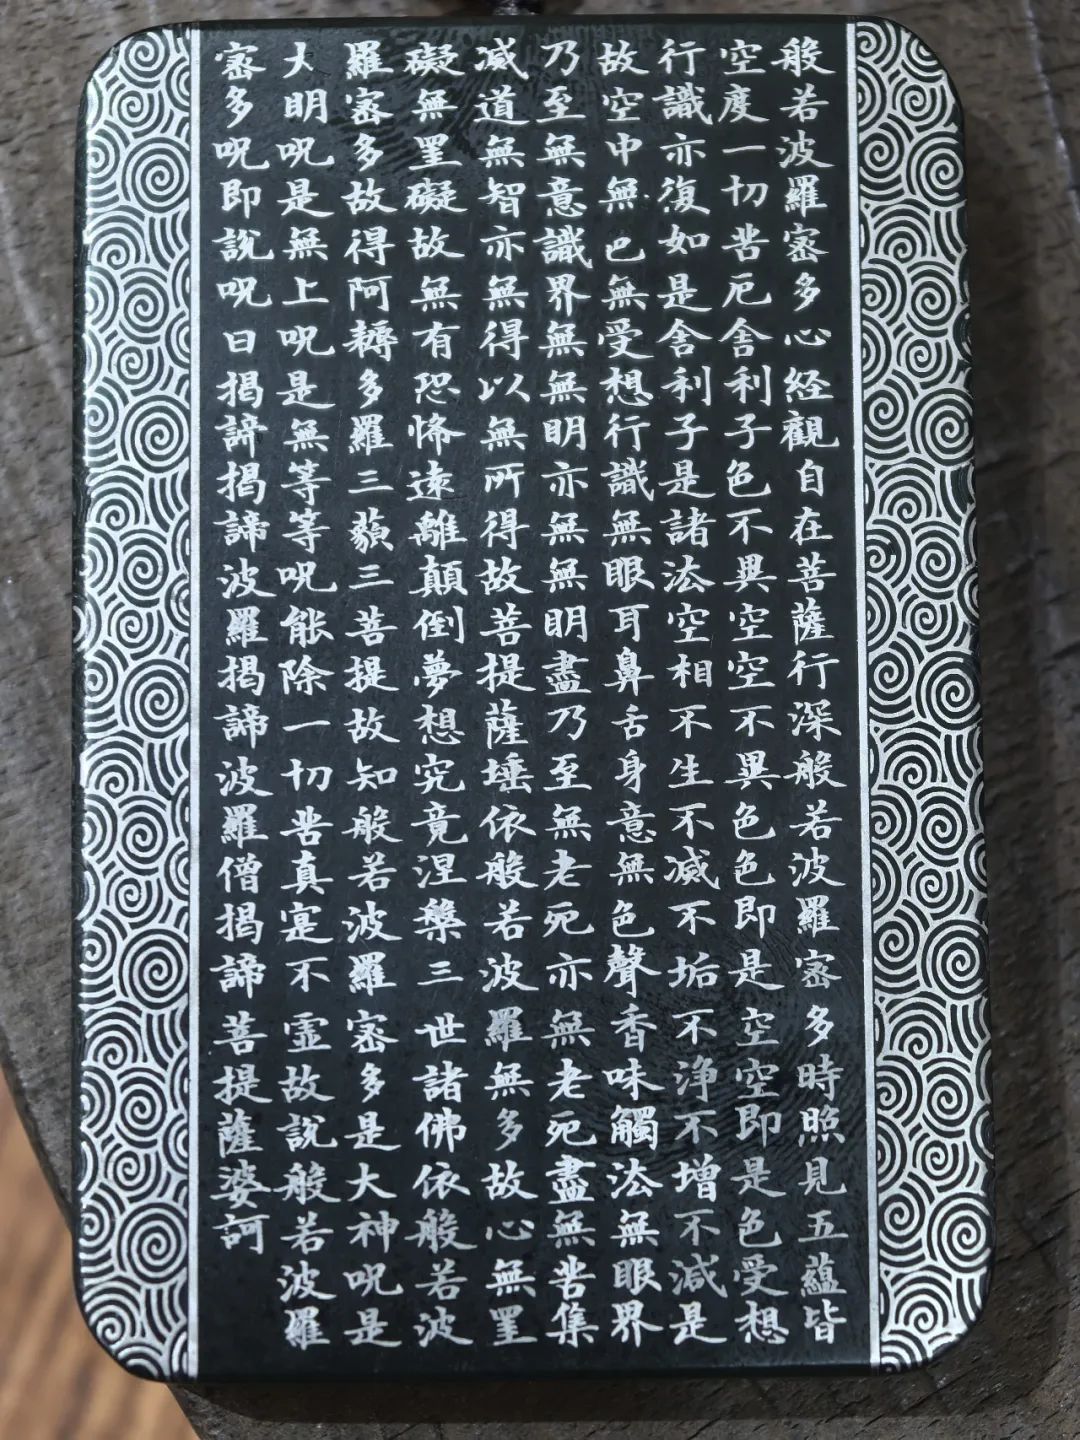 般若波羅密多心経觀自在菩薩行深般若波羅密多時照見五蘊皆
空度一切苦厄舍利子色不異空空不異色色即是空空即是色受想
行識亦復如是舍利子是諸法空相不生不滅不垢不浄不增不減是
故空中無色無受想行識無眼耳鼻舌身意無色聲香味觸法無眼界
乃至無意識界無無明亦無無明盡乃至無老死亦無老死盡無苦集
滅道無智亦無得以無所得故菩提薩埵依般若波羅無多故心無罣
礙無罣礙故無有恐怖遠離顛倒夢想究竟涅槃三世諸佛依般若波
羅密多故得阿耨多羅三藐三菩提故知般若波羅密多是大神呪是
大明呪是無上呪是無等等呪能除一切苦真寔不虛故說般若波羅
密多呪即說呪曰揭諦揭諦波羅揭諦波羅僧揭諦菩提薩婆訶